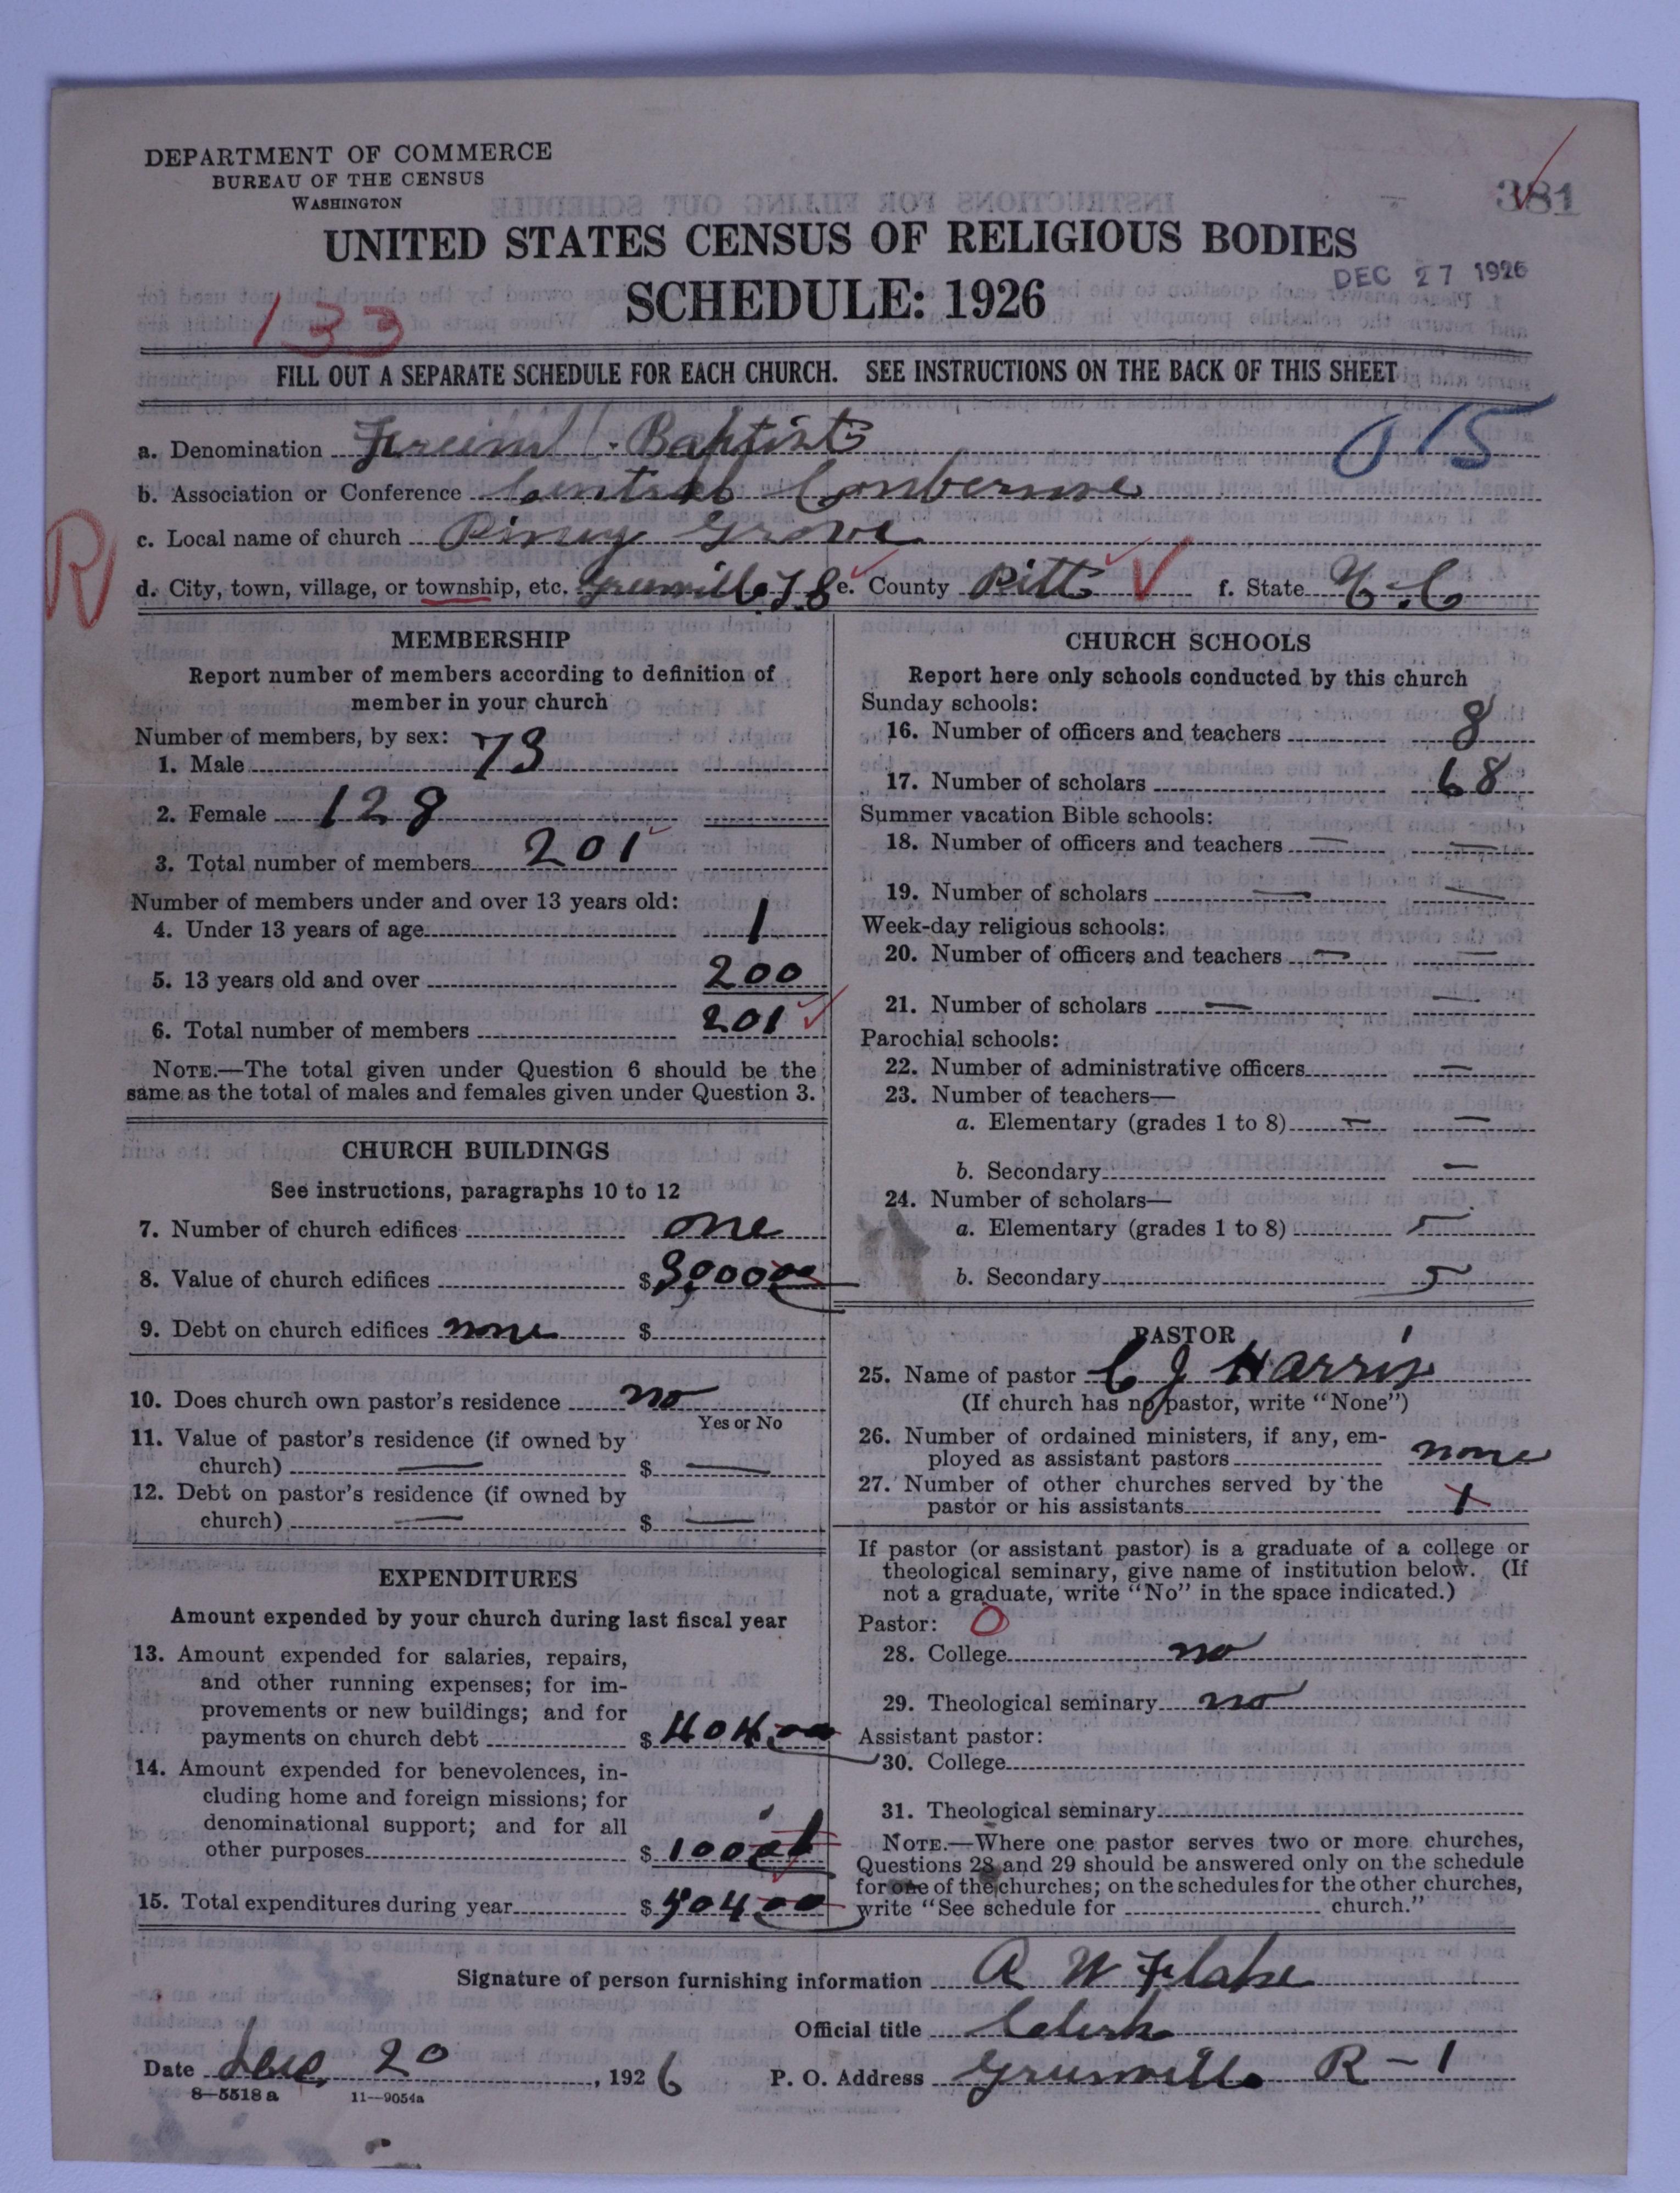 DEPARTMENT OF COMMERCE
BUREAU OF THE CENSUS
WASHINGTON
381
UNITED STATES CENSUS OF RELIGIOUS BODIES
DEC 27 1926
SCHEDULE: 1926
133
FILL OUT A SEPARATE SCHEDULE FOR EACH CHURCH. SEE INSTRUCTIONS ON THE BACK OF THIS SHEET
015
a. Denomination Baptist
b. Association or Conference Central
c. Local name of church Piney Grove
R
d. City, town, village, or township, etc. Greenville e. County Pitt f. State N.C
MEMBERSHIP
Report number of members according to definition of
member in your church
Number of members, by sex:
1. Male 73
2. Female 128
3. Total number of members 201
Number of members under and over 13 years old:
4. Under 13 years of age 1
5. 13 years old and over 200
6. Total number of members 201
NOTE.—The total given under Question 6 should be the
same as the total of males and females given under Question 3.
CHURCH BUILDINGS
See instructions, paragraphs 10 to 12
7. Number of church edifices one
8. Value of church edifices $
9. Debt on church edifices none $
10. Does church own pastor's residence no
Yes or No
11. Value of pastor's residence (if owned by
church) — $ —
12. Debt on pastor's residence (if owned by
church) — $ —
EXPENDITURES
Amount expended by your church during last fiscal year
13. Amount expended for salaries, repairs,
and other running expenses; for im-
provements or new buildings; and for
payments on church debt $ 404 00
14. Amount expended for benevolences, in-
cluding home and foreign missions; for
denominational support; and for all
other purposes $ 100
15. Total expenditures during year $ 504 00
CHURCH SCHOOLS
Report here only schools conducted by this church
Sunday schools:
16. Number of officers and teachers 8
17. Number of scholars 68
Summer vacation Bible schools:
18. Number of officers and teachers — —
19. Number of scholars — —
Week-day religious schools:
20. Number of officers and teachers — —
21. Number of scholars — —
Parochial schools:
22. Number of administrative officers —
23. Number of teachers—
a. Elementary (grades 1 to 8) — —
b. Secondary —
24. Number of scholars—
a. Elementary (grades 1 to 8)
b. Secondary
PASTOR
25. Name of pastor C J Harris
(If church has no pastor, write "None")
26. Number of ordained ministers, if any, em-
ployed as assistant pastors none
27. Number of other churches served by the
pastor or his assistants
If pastor (or assistant pastor) is a graduate of a college or
theological seminary, give name of institution below. (If
not a graduate, write "No" in the space indicated.)
Pastor: O
28. College no
29. Theological seminary no
Assistant pastor:
30. College
31. Theological seminary
NOTE.—Where one pastor serves two or more churches,
Questions 28 and 29 should be answered only on the schedule
for one of the churches; on the schedules for the other churches,
write "See schedule for church."
Signature of person furnishing information W
Official title Clerk
Date Dec. 20, 1926 P. O. Address Greenville R-1
8—5518 a 11—9054a